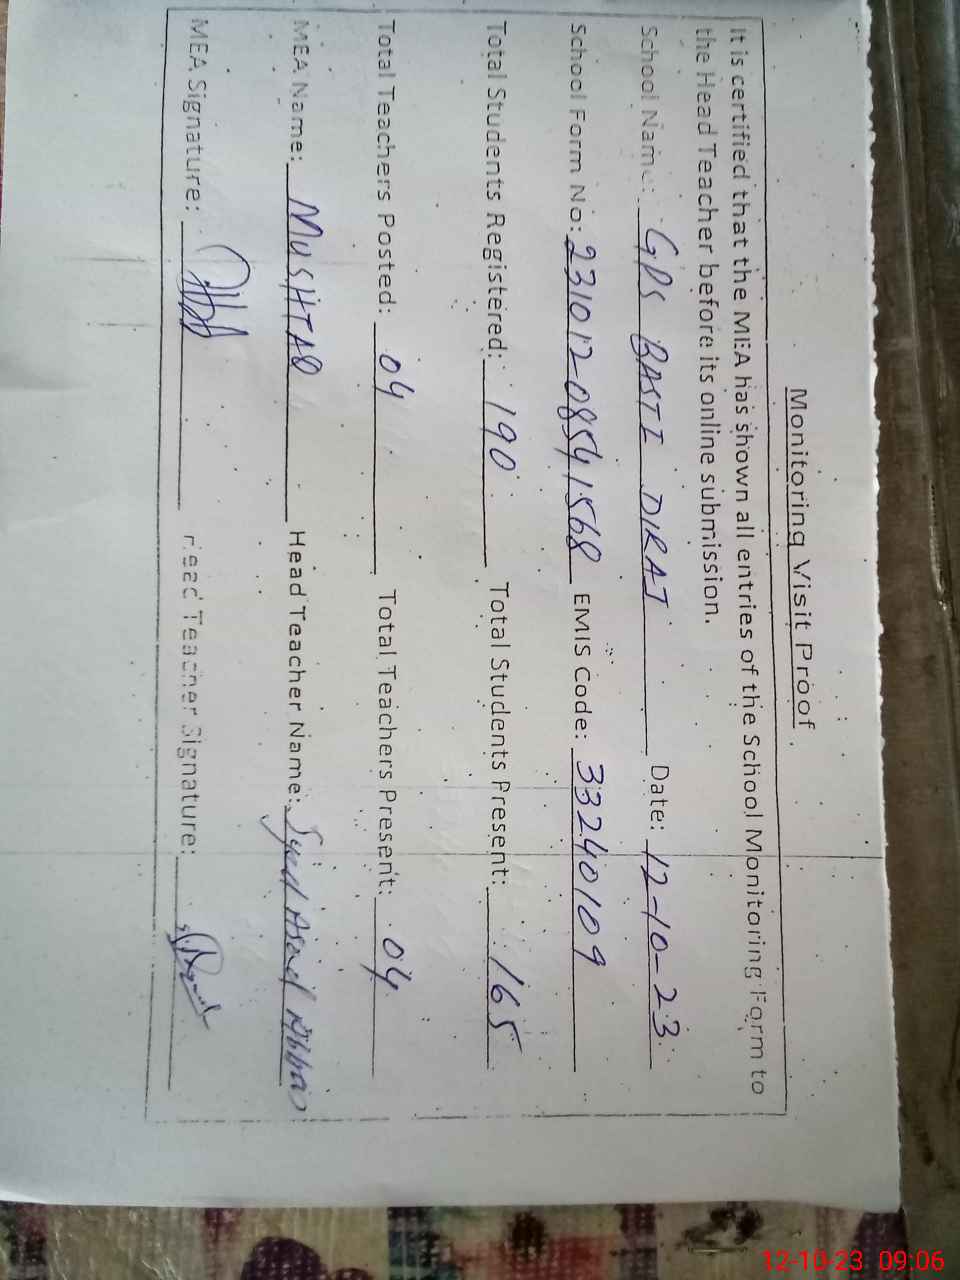 Monitoring Visit Proof
It is certified that the MEA has shown all entries of the School Monitoring Form to
the Head Teacher before its online submission.
School Name: GPS BASTI DIRAJ Date: 12-10-23
School Form No: 23101208541568 EMIS Code: 33240109
Total Students Registered: 190 Total Students Present: 165
Total Teachers Posted: 04 Total Teachers Present: 04
MEA Name: MUSHTAQ Head Teacher Name: Syed Asad Abbas
MEA Signature: Head Teacher Signature:
12-10-23 09:06